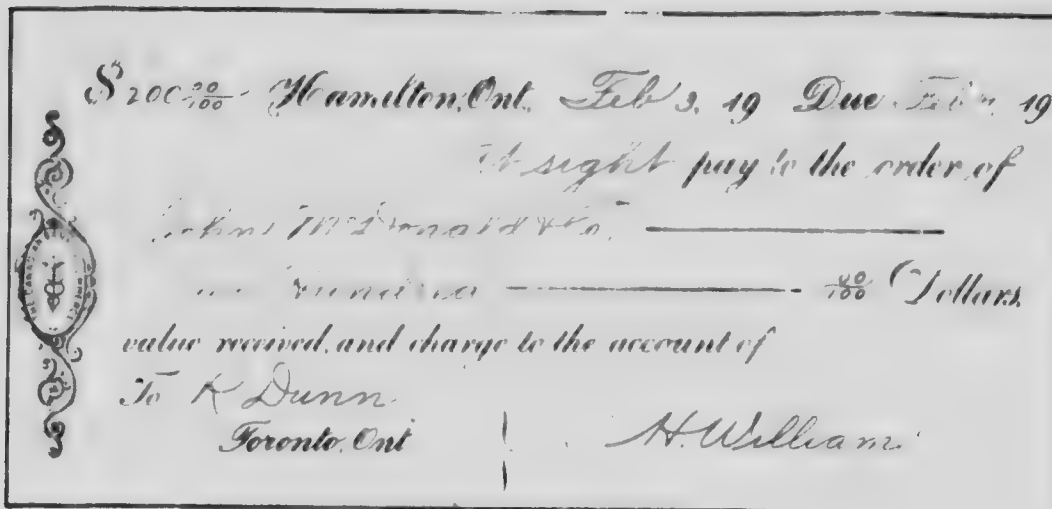 $200 00/100 Hamilton, Ont. Feb 3, 19 Due Feb 19
At sight pay to the order of
John McDonald & Co.
Hundred 00/100 Dollars
value received, and charge to the account of
To K Dunn
Toronto, Ont H. William